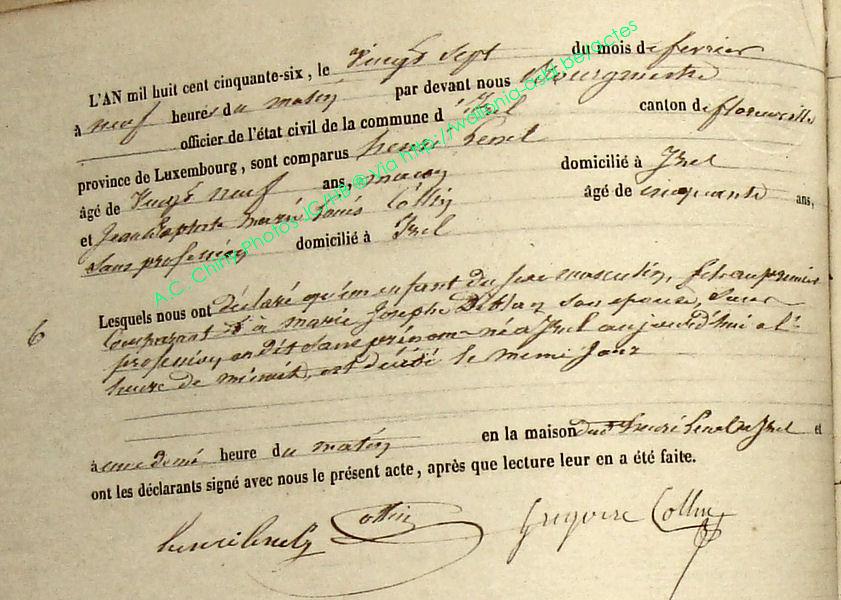 L'AN mil huit cent cinquante-six, le vingt sept du mois de fevrier
à neuf heures du matin par devant nous Bourgmestre
officier de l'état civil de la commune d' Izel canton de florenville
province de Luxembourg, sont comparus henri Senel
âgé de Vingt neuf ans, maçon domicilié à Izel
et Jean Baptiste marie Louis Collin âgé de cinquante ans,
sans profession domicilié à Izel
6
Lesquels nous ont déclaré qu'un enfant du sexe masculin, fils au premier
Comparant & à marie Josephe son épouse, sans
profession, en dit sans prénom né à Izel aujourd'hui à l'
heure de minuit, est décédé le meme jour
à une demi heure du matin en la maison dud. henri Senel à Izel et
ont les déclarants signé avec nous le présent acte, après que lecture leur en a été faite.
Collin Grégoire Collin
A.C. Chiny Photos JC/HB ® Via http://wallonia-asbl.be/actes